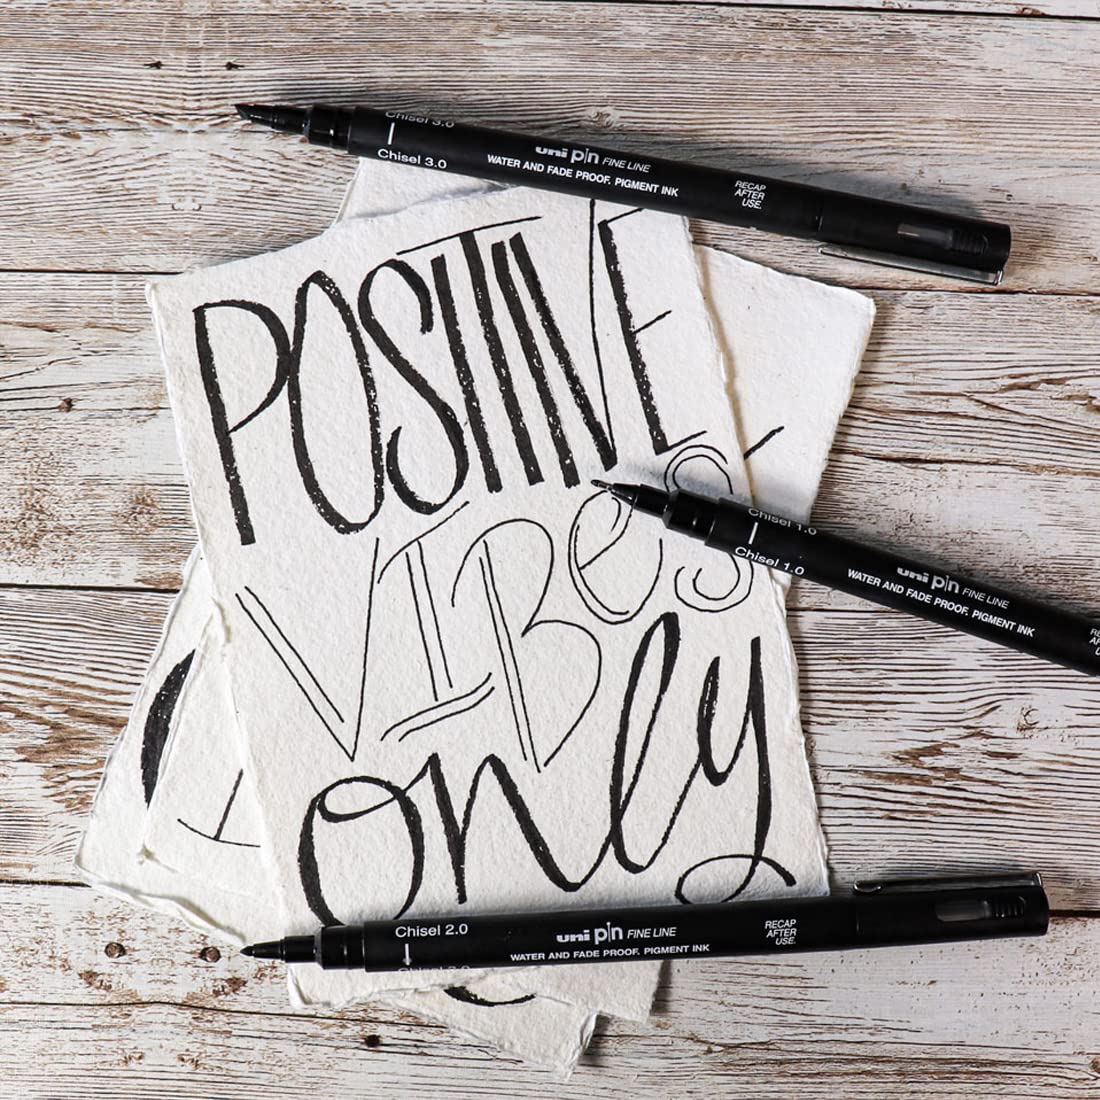 Chisel 3.0
Chisel 3.0
uni pin FINE LINE
WATER AND FADE PROOF. PIGMENT INK
RECAP
AFTER
USE.
POSITIVE
VIBes
only
Chisel 1.0
Chisel 1.0
uni pin FINE LINE
WATER AND FADE PROOF. PIGMENT INK
Chisel 2.0
uni pin FINE LINE
WATER AND FADE PROOF. PIGMENT INK
RECAP
AFTER
USE.